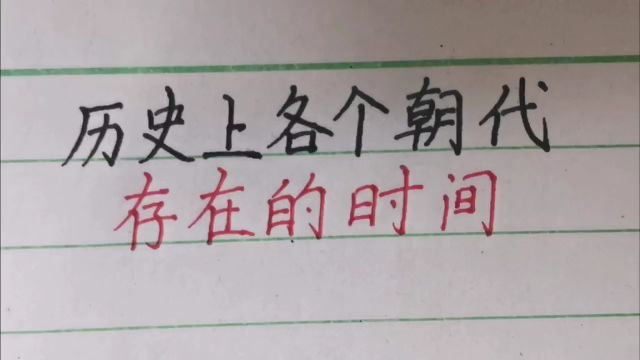 历史上各个朝代
存在的时间